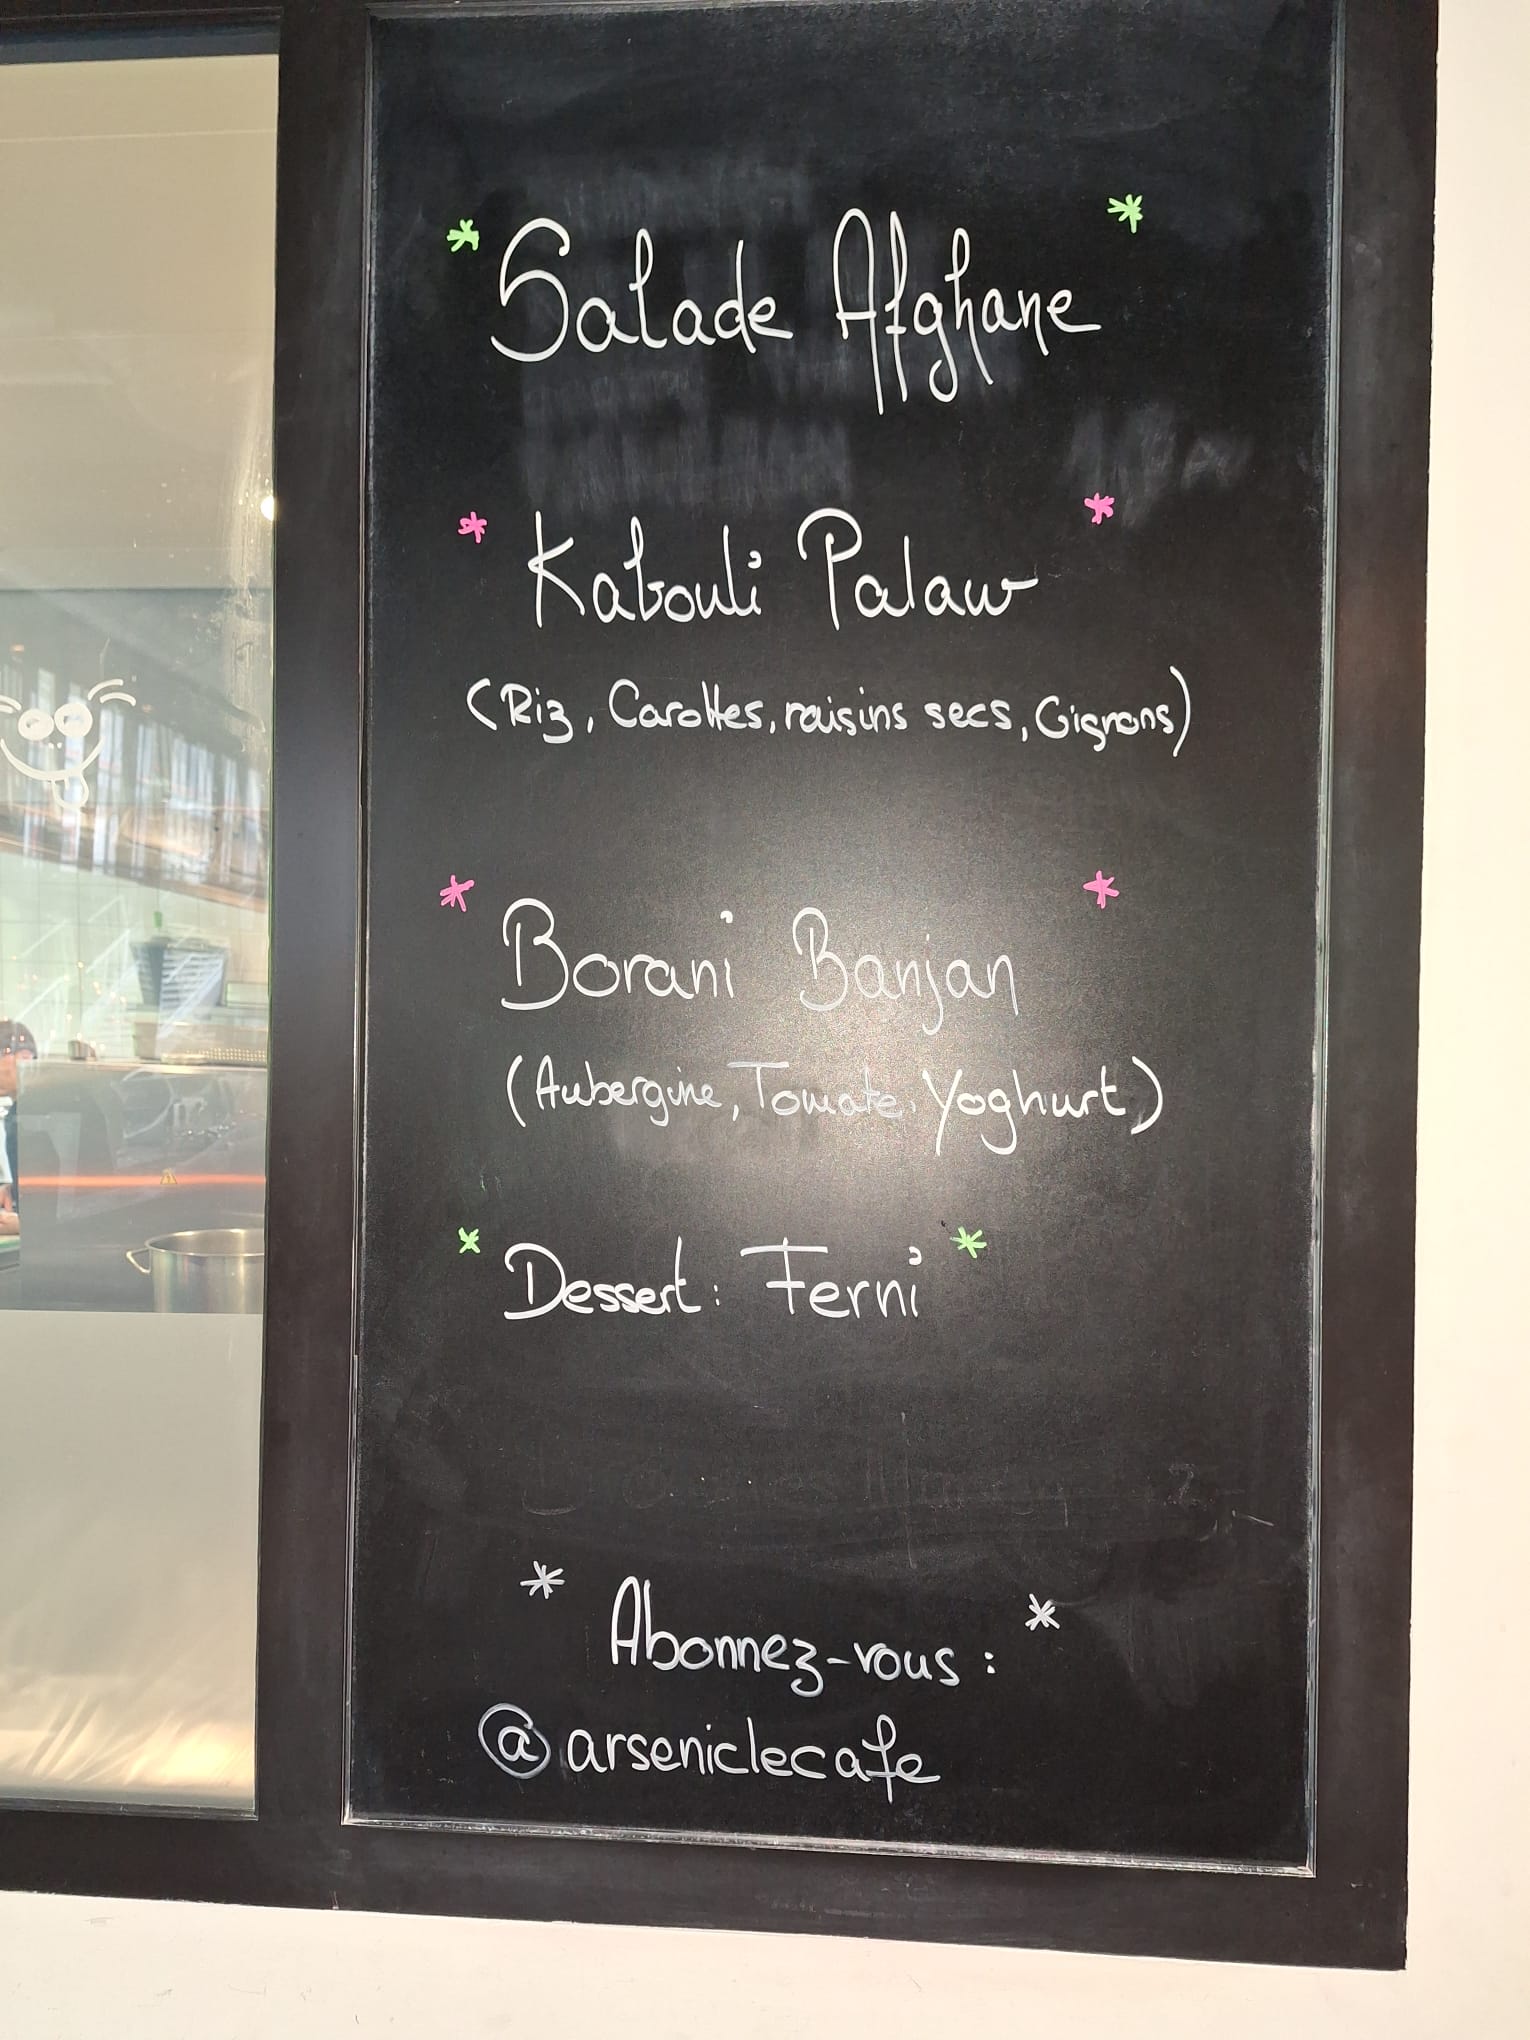 * Salade Afghane *
* Kabouli Palaw *
(Riz, Carottes, raisins secs, Oignons)
* Borani Banjan *
(Aubergine, Tomate, Yoghurt)
* Dessert: Ferni *
* Abonnez-vous : *
@arseniclecafe